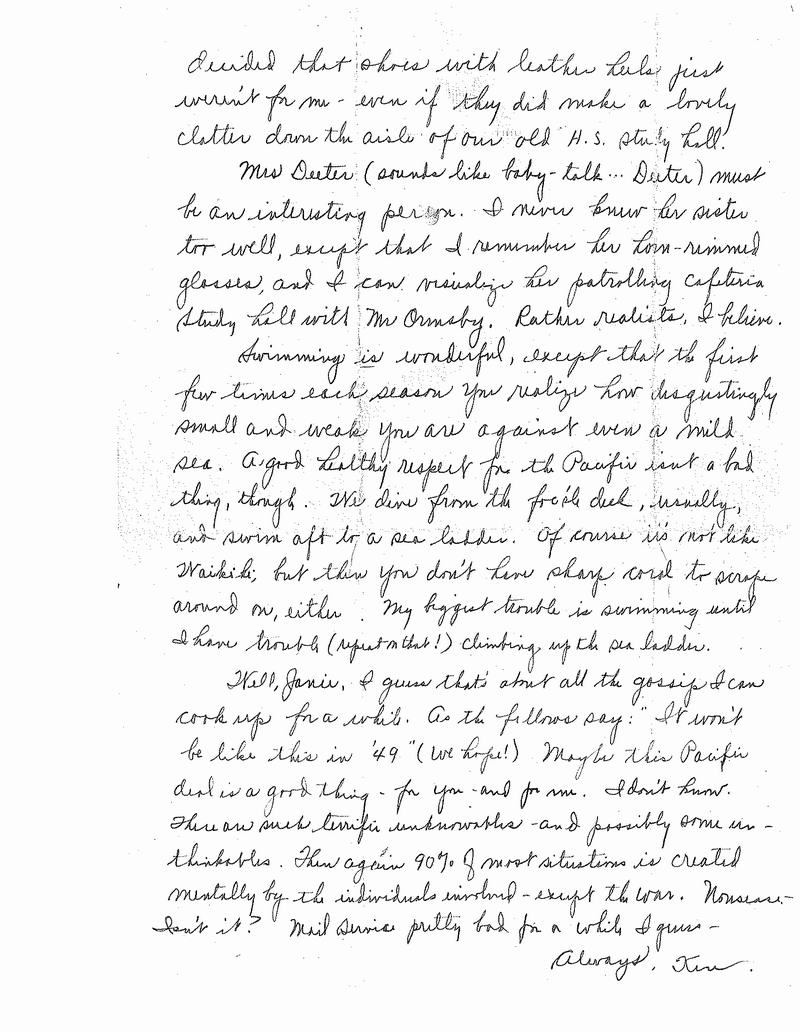 decided that shoes with leather heels just
weren't for me - even if they did make a lovely
clatter down the aisle of our old H.S. study hall.
Mrs Deeter (sounds like baby-talk... Deeter) must
be an interesting person. I never knew her sister
too well, except that I remember her horn-rimmed
glasses, and I can visualize her patrolling cafeteria
study hall with Mr Ormsby. Rather realists, I believe.
Swimming is wonderful, except that the first
few times each season you realize how disgustingly
small and weak you are against even a mild
sea. A good healthy respect for the Pacific isn't a bad
thing, though. We dive from the foc'sle deck, usually,
and swim aft to a sea ladder. Of course it's not like
Waikiki, but then you don't have sharp coral to scrape
around on, either. My biggest trouble is swimming until
I have trouble (repeat on that!) climbing up the sea ladder.
Well, Janie, I guess that's about all the gossip I can
cook up for a while. As the fellows say: "It won't
be like this in '49" (we hope!) Maybe this Pacific
deal is a good thing - for you - and for me. I don't know.
There are such terrific unknowables - and possibly some un-
thinkables. Then again 90% of most situations is created
mentally by the individuals involved - except the war. Nonsense -
Isn't it? Mail service pretty bad for a while I guess -
Always, Ken.